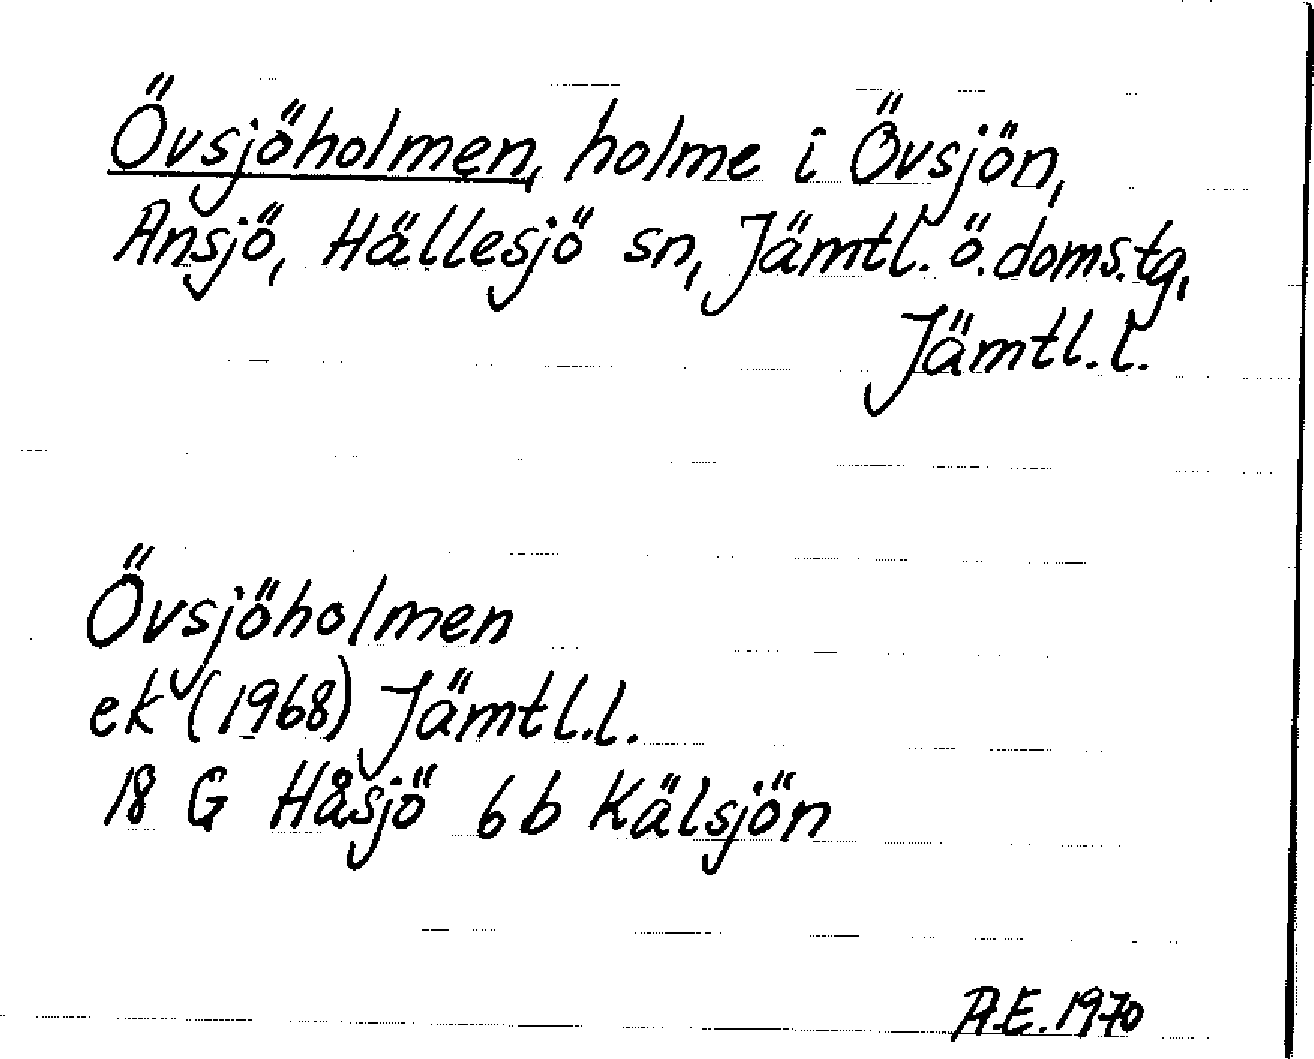 Övsjöholmen, holme i Övsjön,
Ansjö, Hällesjö sn, Jämtl. ö. doms.tg,
Jämtl. l.
Övsjöholmen
ek (1968) Jämtl.l.
18 G Håsjö 6 b Kälsjön
A.E. 1970